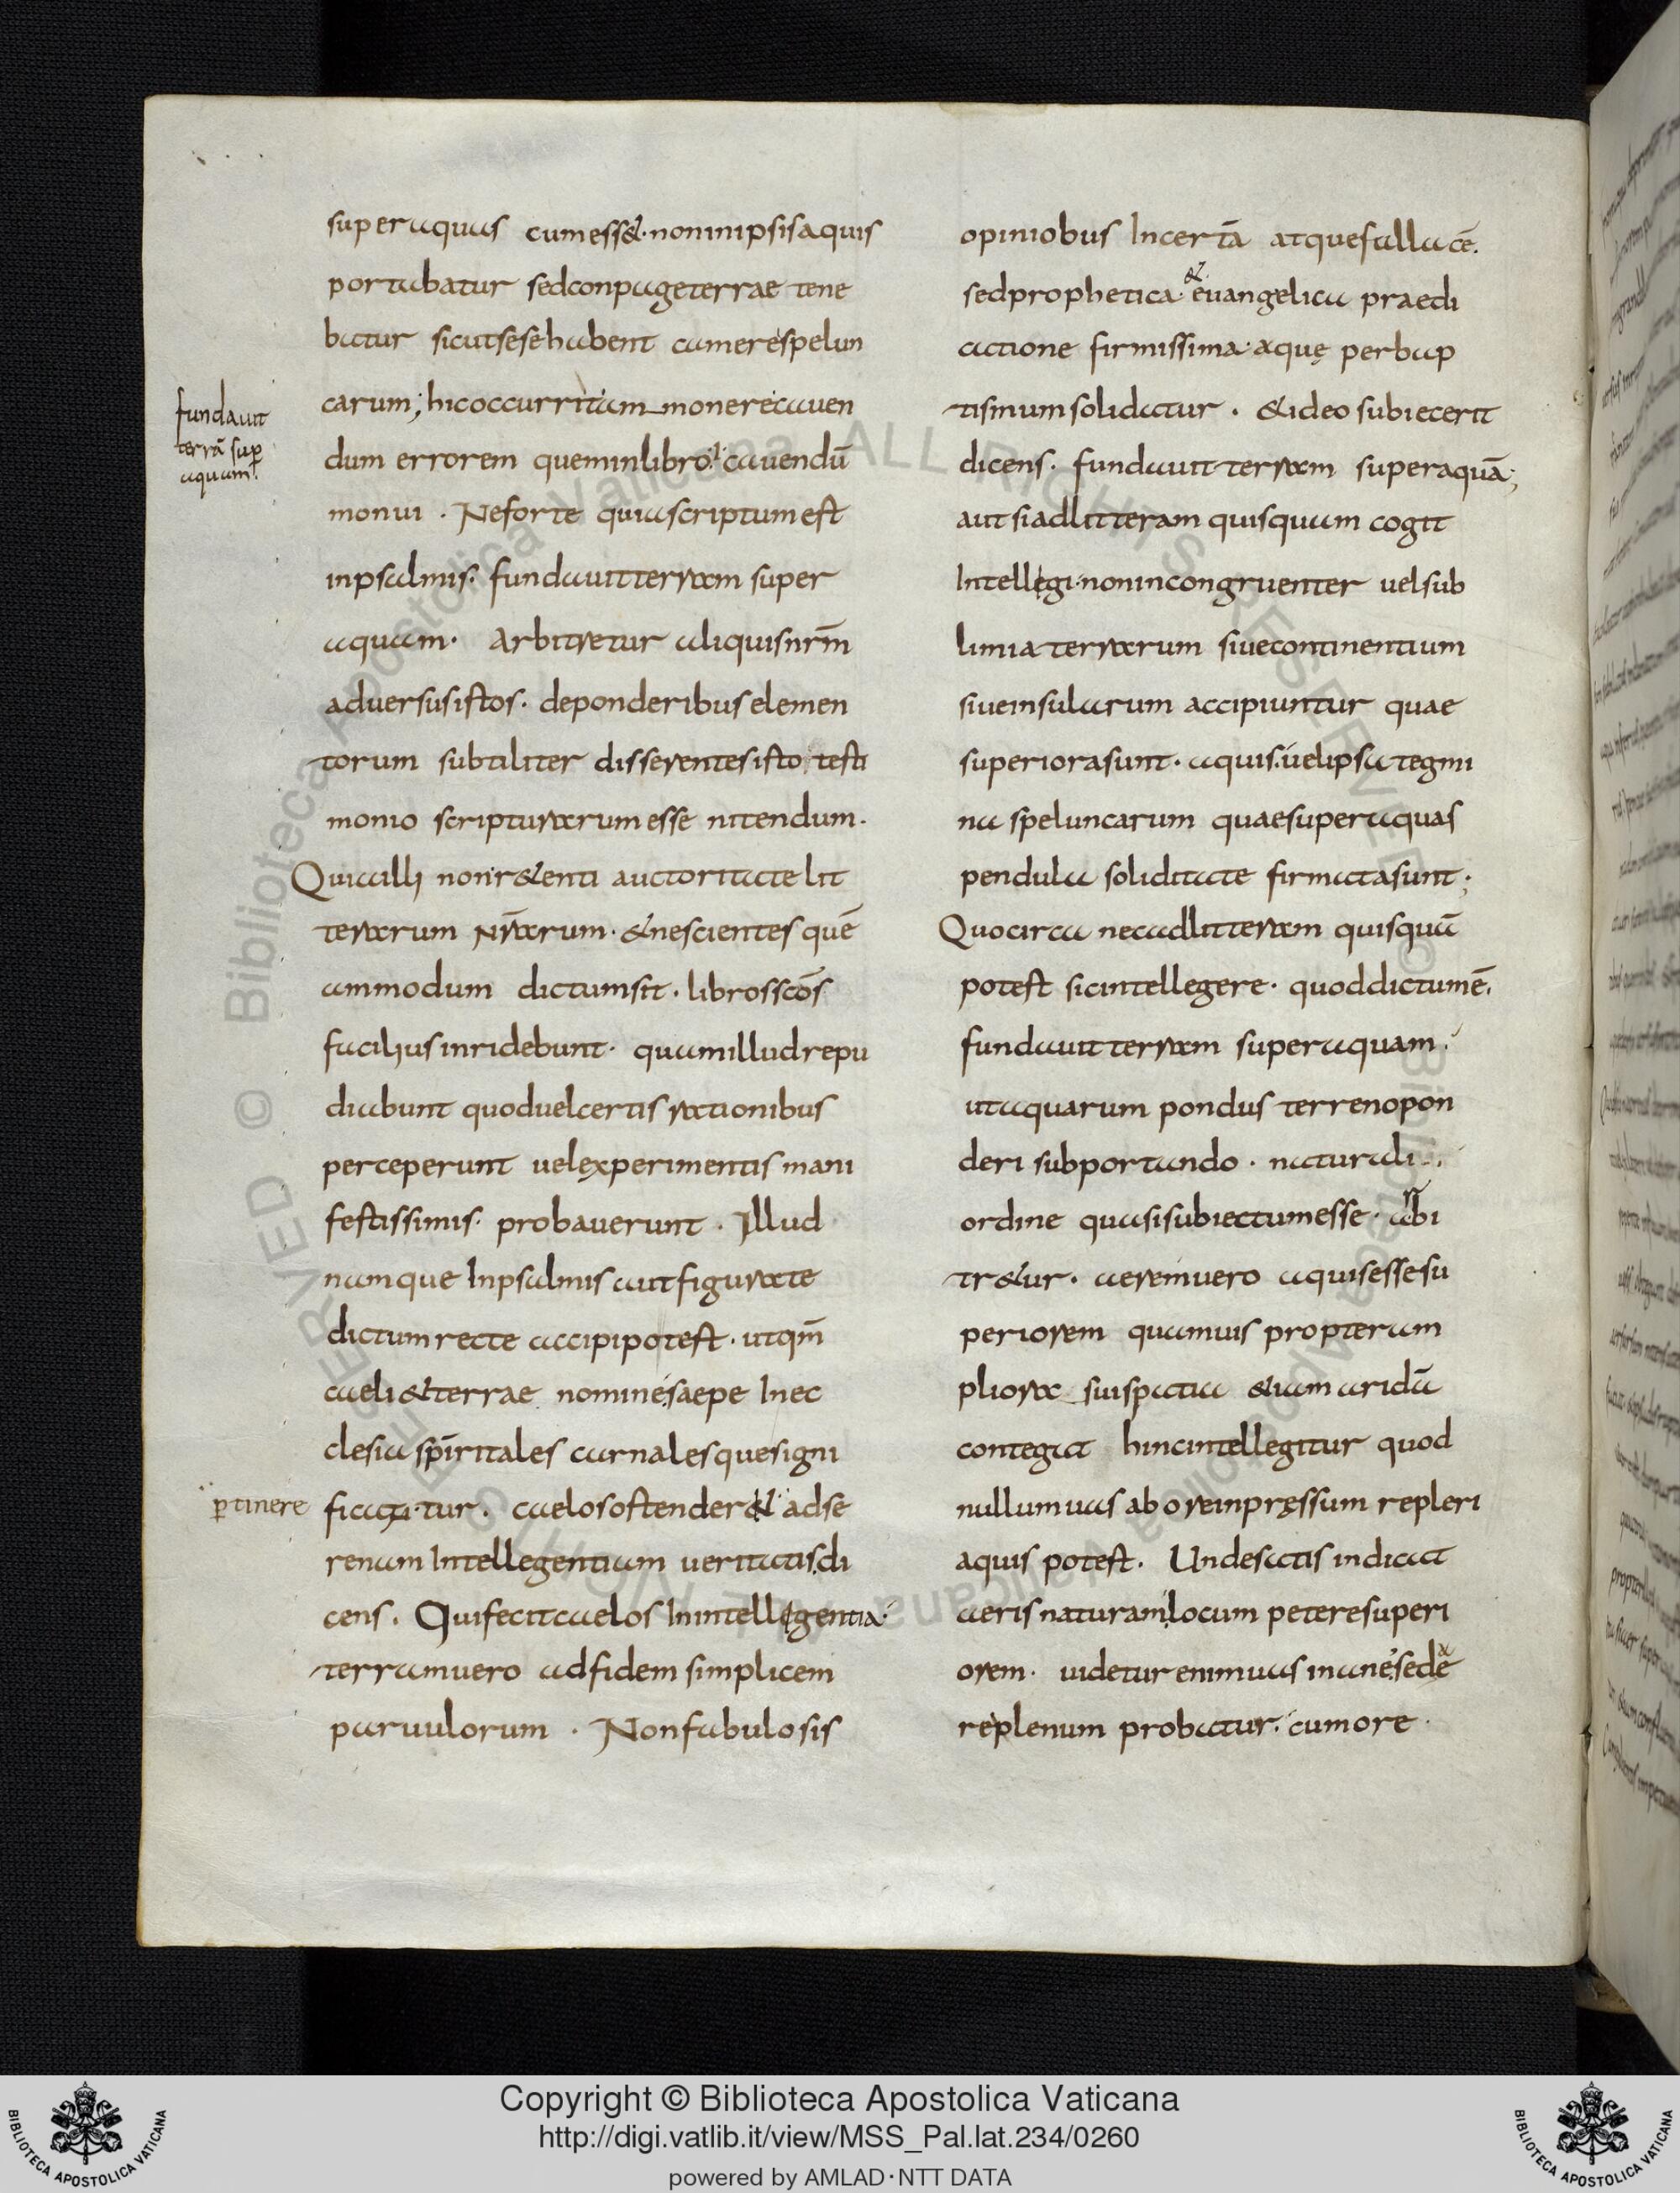 super aquas cum ess&. non in ipsis aquis
portabatur sed conpage terrae tene
batur sicut sese habent camere spelun
carum; hic occurrit iam monere cauen
dum errorem quem in libro. i. cauendū
monui. Ne forte quia scriptum est
in psalmis. fundauit terram super
aquam. Arbitretur aliquis nr̄m
aduersus istos. de ponderibus elemen
torum subtiliter disserentes isto testi
monio scripturarum esse nitendum.
Quia illi non r&enti auctoritate lit
terarum nr̄arum. & nescientes quē
ammodum dictum sit. libros scōs
facilius inridebunt. quam illud repu
diabunt quod uel certis rationibus
perceperunt uel experimentis mani
festissimis. probauerunt. Illud
namque In psalmis aut figurate
dictum recte accipi potest. ut qm̄
caeli & terrae nomine saepe In ec
clesia spīritales carnalesque signi
ficantur. caelos ostender& ad se
renam Intellegentiam ueritatis. di
cens. Qui fecit caelos In intellegentia.
terram uero ad fidem simplicem
paruulorum. Non fabulosis
fundauit
terrā sup̱
aquam.
p̱tinere
opiniobus Incertā atque fallacē.
sed prophetica. & euangelica praedi
catione firmissima. aquę per bap
tismum solidatur. & ideo subiecerit
dicens. fundauit terram super aquā;
aut si ad litteram quisquam cogit
Intellegi. non incongruenter uel sub
limia terrarum siue continentium
siue insularum accipiuntur quae
superiora sunt. aquis. uel ipsa tegmi
na speluncarum quae super aquas
pendula soliditate firmata sunt;
Quocirca nec ad litteram quisquā
potest sic intellegere. quod dictum ē.
fundauit terram super aquam.
ut aquarum pondus terreno pon
deri subportando. naturali
ordine quasi subiectum esse. arbi
tr&ur. aerem uero aquis esse su
periorem quamuis propter am
pliora sui spatia &iam aridā
contegat hinc intellegitur quod
nullum uas ab ore inpręssum repleri
aquis potest. Unde satis indicat
aeris naturam locum petere superi
orem. uidetur enim uas inane. sed ē
replenum probatur. cum ore.
Copyright © Biblioteca Apostolica Vaticana
http://digi.vatlib.it/view/MSS_Pal.lat.234/0260
powered by AMLAD·NTT DATA
BIBLIOTECA APOSTOLICA VATICANA
BIBLIOTECA APOSTOLICA VATICANA